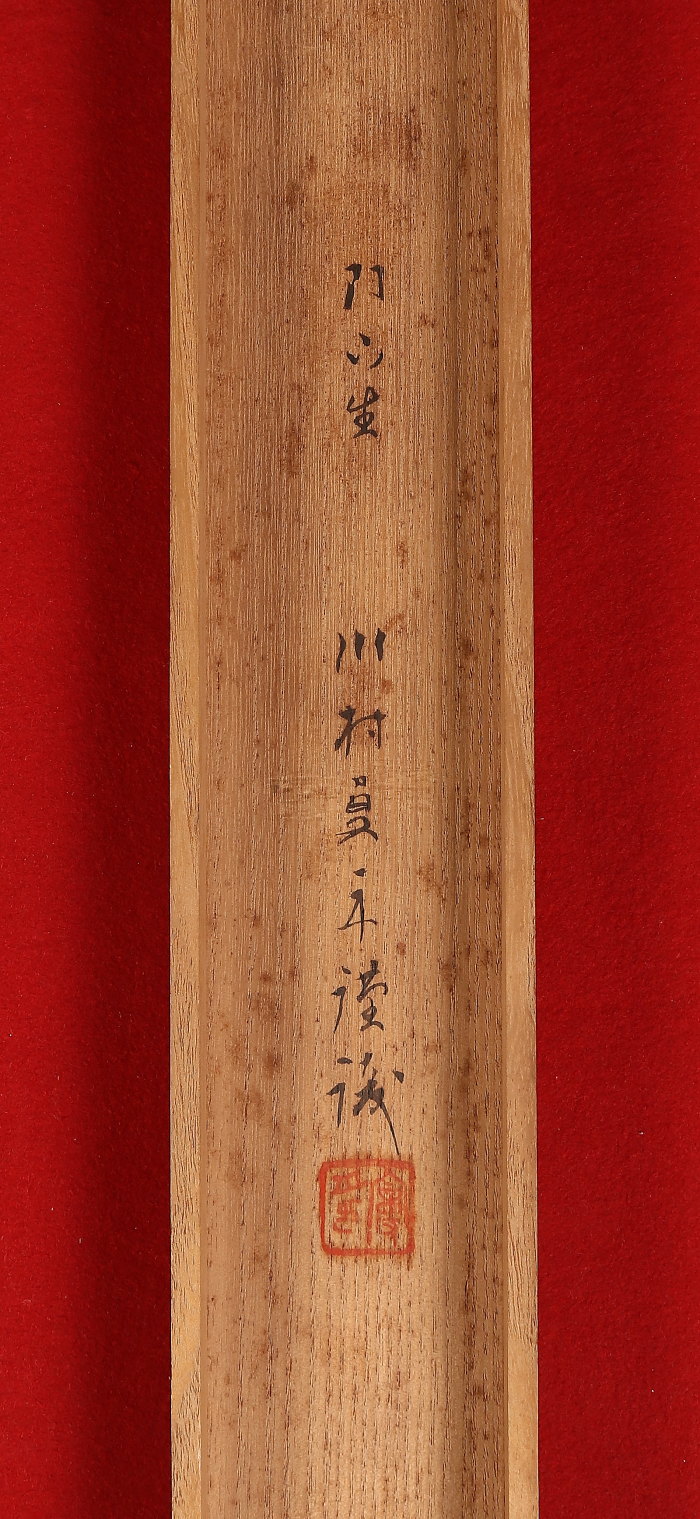 門下生 川村曼舟謹識